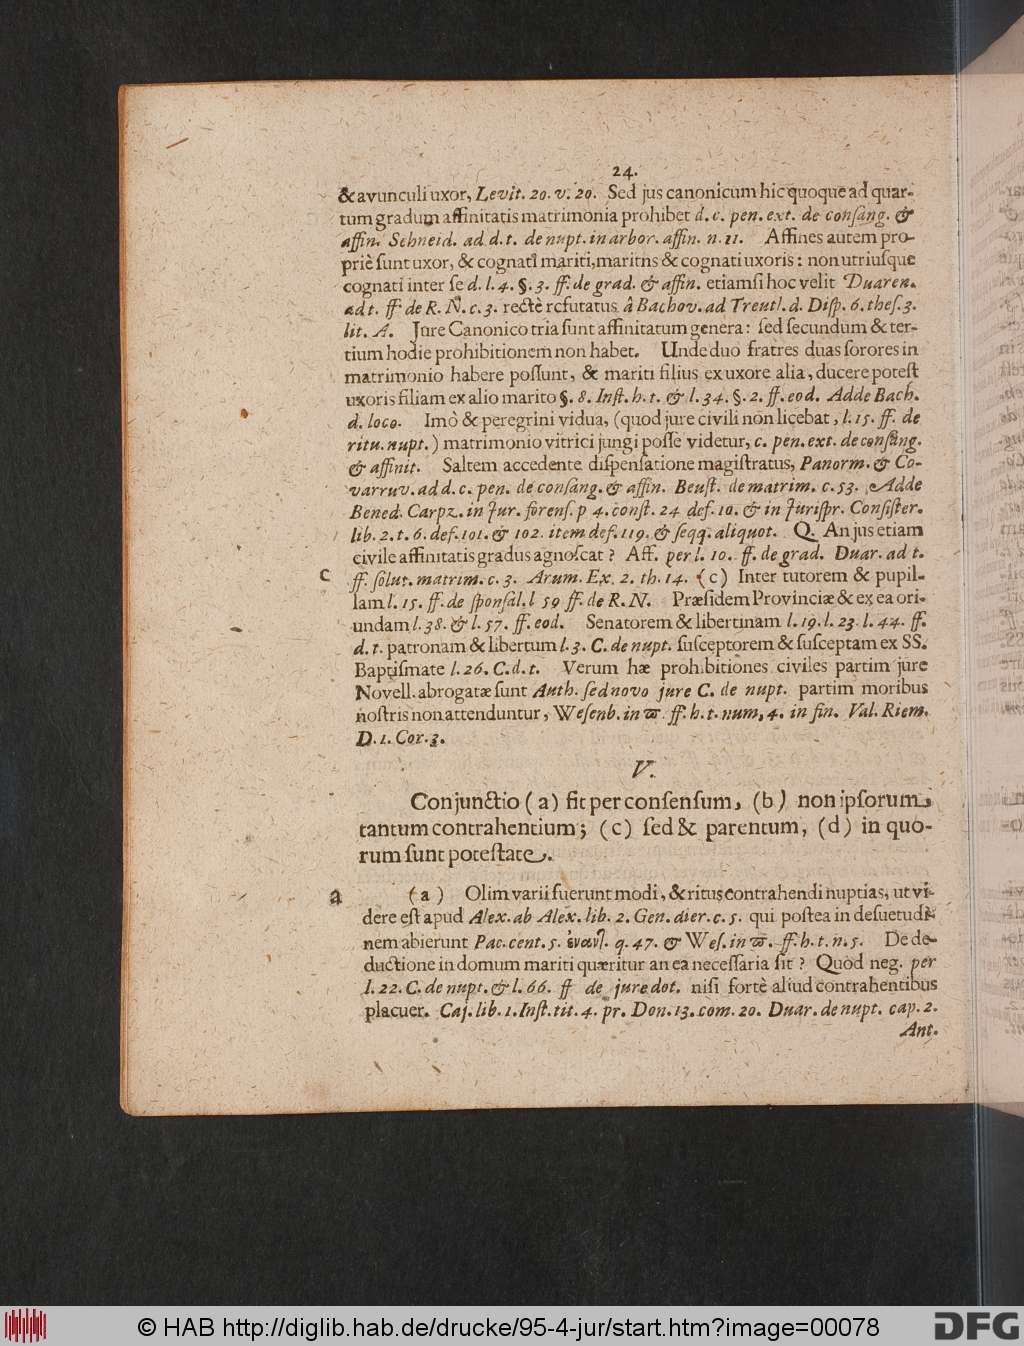 24.
& avunculi uxor, Levit. 20. v. 20. Sed jus canonicum hic quoque ad quar-
tum gradum affinitatis matrimonia prohibet d. c. pen. ext. de consang. &
affin. Schneid. ad d. t. de nupt. in arbor. affin. n. 11. Affines autem pro-
priè sunt uxor, & cognati mariti, maritus & cognati uxoris: non utriusque
cognati inter se d. l. 4. §. 3. ff. de grad. & affin. etiamsi hoc velit Duaren.
ad t. ff de R. N. c. 3. rectè refutatus à Bachov. ad Treutl. d. Disp. 6. thes. 3.
lit. A. Jure Canonico tria sunt affinitatum genera: sed secundum & ter-
tium hodie prohibitionem non habet. Unde duo fratres duas sorores in
matrimonio habere possunt, & mariti filius ex uxore alia, ducere potest
uxoris filiam ex alio marito §. 8. Inst. h. t. & l. 34. §. 2. ff. eod. Adde Bach.
d. loco. Imò & peregrini vidua, (quod jure civili non licebat, l. 15. ff. de
ritu. nupt.) matrimonio vitrici jungi posse videtur, c. pen. ext. de consang.
& affinit. Saltem accedente dispensatione magistratus, Panorm. & Co-
varruv. ad d. c. pen. de consang. & affin. Beust. de matrim. c. 53. Adde
Bened. Carpz. in Jur. forens. p 4. const. 24 def. 10. & in Jurispr. Consister.
lib. 2. t. 6. def. 101. & 102. item def. 119. & seqq. aliquot. Q. An jus etiam
civile affinitatis gradus agnoscat? Aff. per l. 10. ff. de grad. Duar. ad t.
c ff. solut. matrim. c. 3. Arum. Ex. 2. th. 14. (c) Inter tutorem & pupil-
lam l. 15. ff. de sponsal. l 59 ff. de R. N. Præsidem Provinciæ & ex ea ori-
undam l. 38. & l. 57. ff. eod. Senatorem & libertinam l. 19. l. 23. l. 44. ff.
d. t. patronam & libertum l. 3. C. de nupt. susceptorem & susceptam ex SS.
Baptismate l. 26. C. d. t. Verum hæ prohibitiones civiles partim jure
Novell. abrogatæ sunt Auth. sed novo jure C. de nupt. partim moribus
nostris non attenduntur, Wesenb. in ϖ. ff. h. t. num, 4. in fin. Val. Riem.
D. 1. Cor. 3.
V.
Conjunctio (a) fit per consensum, (b) non ipsorum
tantum contrahentium; (c) sed & parentum, (d) in quo-
rum sunt potestate.
a (a) Olim varii fuerunt modi, & ritus contrahendi nuptias, ut vi-
dere est apud Alex. ab Alex. lib. 2. Gen. dier. c. 5. qui postea in desuetudi-
nem abierunt Pac. cent. 5. q. 47. & Wes. in ϖ. ff. h. t. n. 5. De de-
ductione in domum mariti quæritur an ea necessaria sit? Quòd neg. per
l. 22. C. de nupt. & l. 66. ff de jure dot. nisi fortè aliud contrahentibus
placuer. Caj. lib. 1. Inst. tit. 4. pr. Don. 13. com. 20. Duar. de nupt. cap. 2.
Ant.
© HAB http://diglib.hab.de/drucke/95-4-jur/start.htm?image=00078
DFG